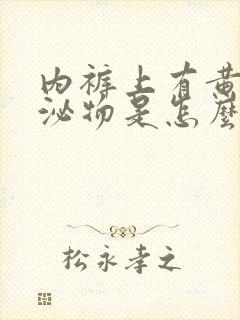 内裤上有黄
泌物是怎麽
松永孝之